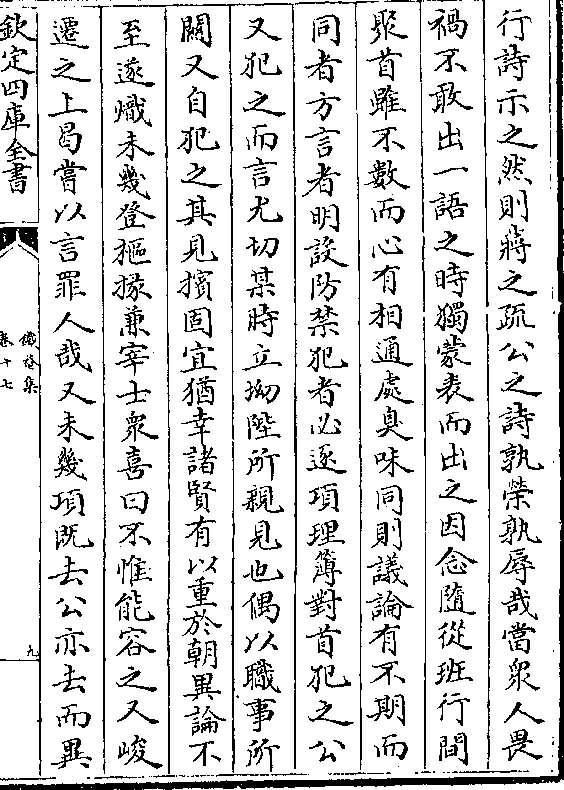 行詩示之然則蔣之疏公之詩孰榮孰辱哉當衆人畏
禍不敢出一語之時獨蒙表而出之因念隨從班行間
聚首雖不數而心有相通處臭味同則議論有不期而
同者方言者明設防禁犯者必逐項理簿對首犯之公
又犯之而言尤切某時立坳陛所親見也偶以職事所
關又自犯之其見擯固宜猶幸諸賢有以重於朝異論不
至遂熾未幾登樞掾兼宰士衆喜曰不惟能容之又峻
遷之上曷嘗以言罪人哉又未幾項既去公亦去而異
欽定四庫全書
鐵菴集
卷十七
九